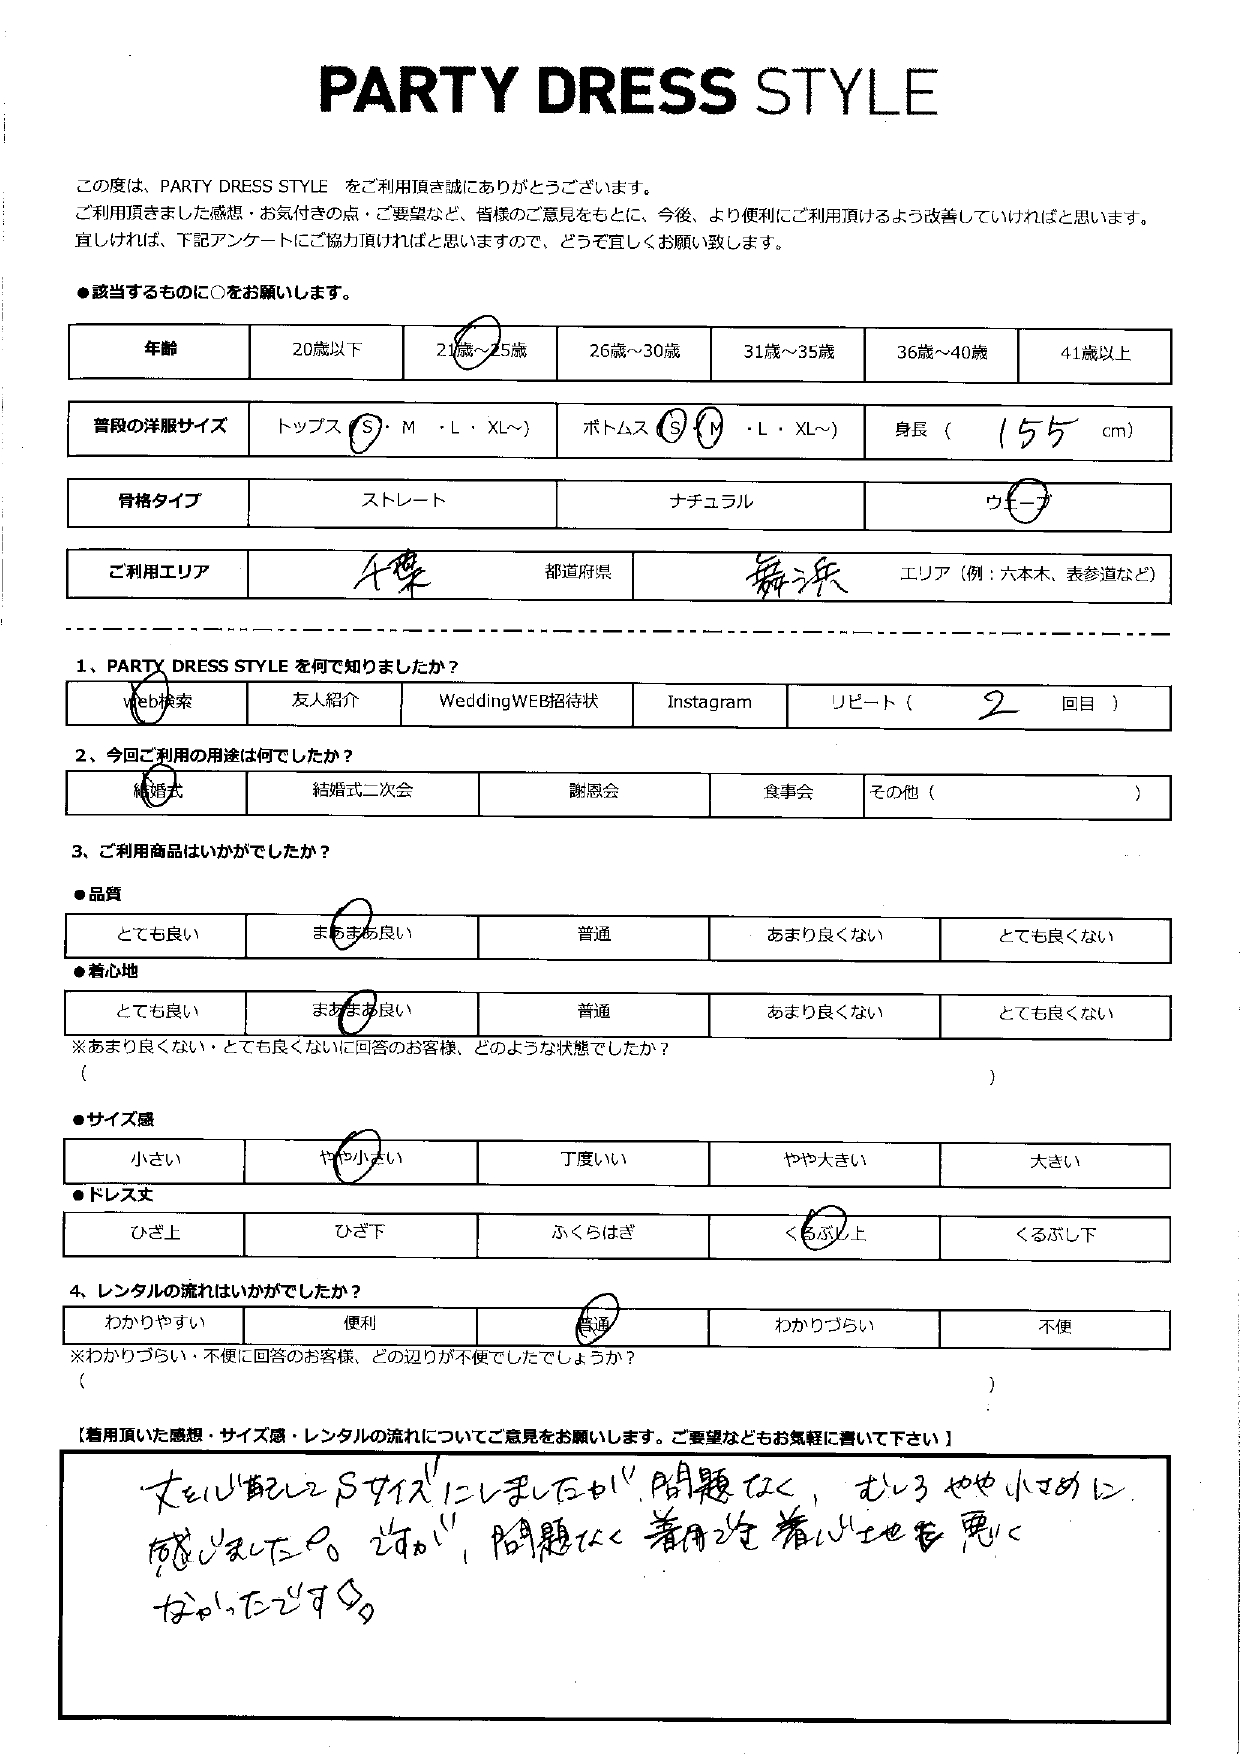 PARTY DRESS STYLE
この度は、PARTY DRESS STYLE をご利用頂き誠にありがとうございます。
ご利用頂きました感想・お気付きの点・ご要望など、皆様のご意見をもとに、今後、より便利にご利用頂けるよう改善していければと思います。
宜しければ、下記アンケートにご協力頂ければと思いますので、どうぞ宜しくお願い致します。
●該当するものに○をお願いします。
年齢 20歳以下 21歳～25歳 26歳～30歳 31歳～35歳 36歳～40歳 41歳以上
普段の洋服サイズ トップス（S・ M ・L ・ XL～) ボトムス（S・M ・L ・ XL～) 身長 （ 155 cm）
骨格タイプ ストレート ナチュラル ウェーブ
ご利用エリア 千葉 都道府県 舞浜 エリア（例：六本木、表参道など）
1、PARTY DRESS STYLE を何で知りましたか？
web検索 友人紹介 WeddingWEB招待状 Instagram リピート（ 2 回目 ）
2、今回ご利用の用途は何でしたか？
結婚式 結婚式二次会 謝恩会 食事会 その他（ ）
3、ご利用商品はいかがでしたか？
●品質
とても良い まあまあ良い 普通 あまり良くない とても良くない
●着心地
とても良い まあまあ良い 普通 あまり良くない とても良くない
※あまり良くない・とても良くないに回答のお客様、どのような状態でしたか？
（ ）
●サイズ感
小さい やや小さい 丁度いい やや大きい 大きい
●ドレス丈
ひざ上 ひざ下 ふくらはぎ くるぶし上 くるぶし下
4、レンタルの流れはいかがでしたか？
わかりやすい 便利 普通 わかりづらい 不便
※わかりづらい・不便に回答のお客様、どの辺りが不便でしたでしょうか？
（ ）
【着用頂いた感想・サイズ感・レンタルの流れについてご意見をお願いします。ご要望などもお気軽に書いて下さい】
丈を心配してSサイズにしましたが、問題なく、むしろやや小さめに
感じました。ですが、問題なく着用でき着心地も悪く
なかったです。